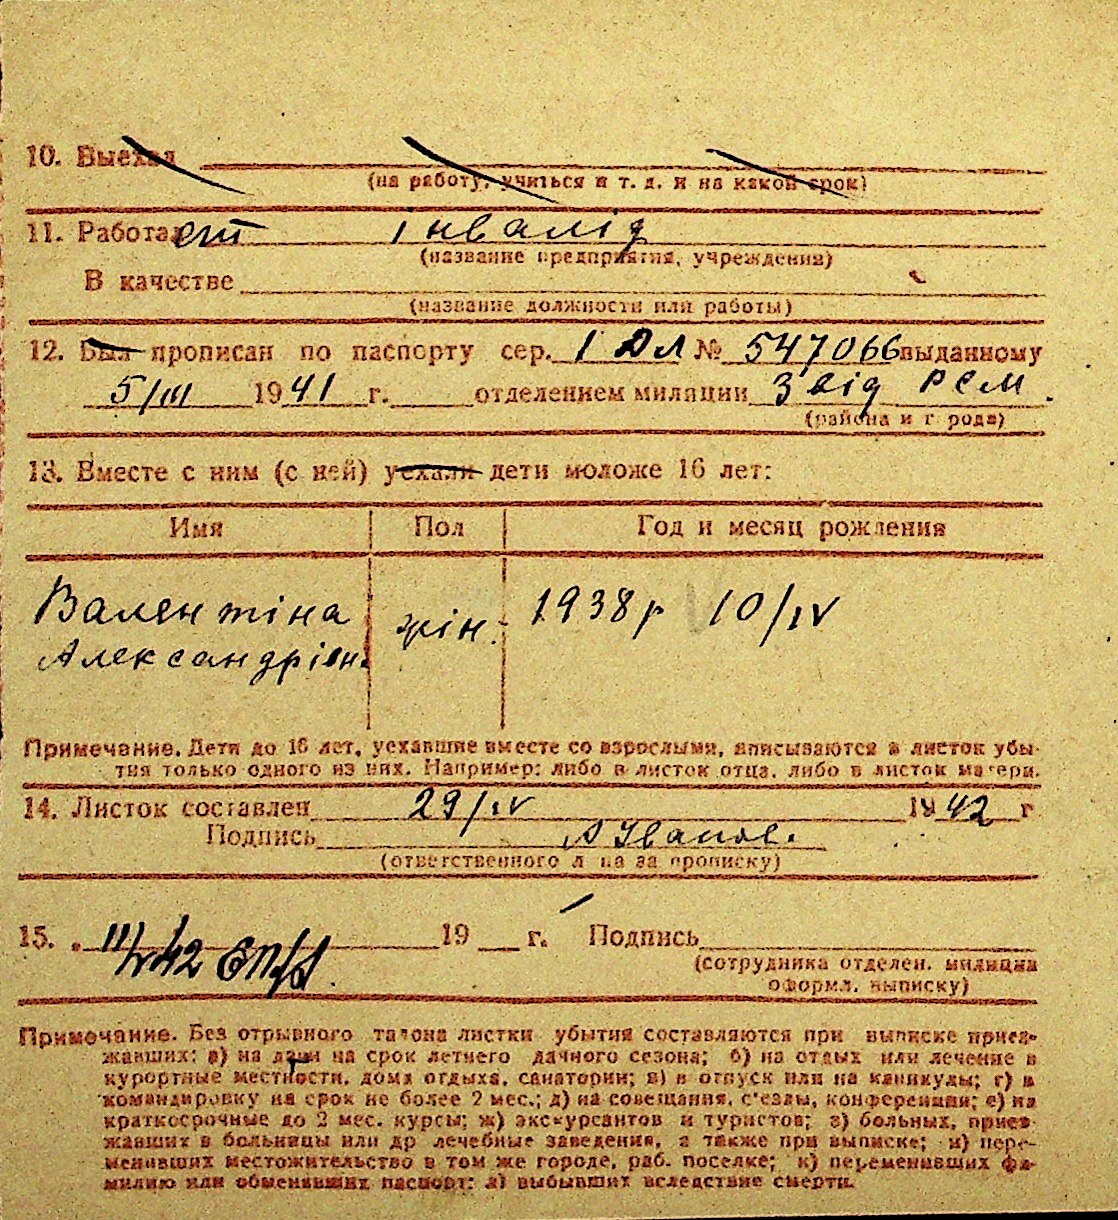 10. Выехал
(на работу, учиться и т. д. и на какой срок)
11. Работает інвалід
(название предприятия, учреждения)
В качестве
(название должности или работы)
12. Был прописан по паспорту сер. 1 ДЛ № 547066 выданному
5/III 1941 г. отделением милиции 3 від РСМ.
(района и города)
13. Вместе с ним (с ней) уехали дети моложе 16 лет:
Имя Пол Год и месяц рождения
Валентіна жін. 1938 р 10/IV
Александрівн.
Примечание. Дети до 16 лет, уехавшие вместе со взрослыми, вписываются в листок убы-
тия только одного из них. Например: либо в листок отца, либо в листок матери.
14. Листок составлен 29/IV 1942 г
Подпись А Іванов.
(ответственного лица за прописку)
15. 19 г. Подпись
(сотрудника отделен. милиции
оформл. выписку)
Примечание. Без отрывного талона листки убытия составляются при выписке приез-
жавших: а) на дачи на срок летнего дачного сезона; б) на отдых или лечение в
курортные местности, дома отдыха, санатории; в) в отпуск или на каникулы; г) в
командировку на срок не более 2 мес.; д) на совещания, с'езды, конференции; е) на
краткосрочные до 2 мес. курсы; ж) экскурсантов и туристов; з) больных, приез-
жавших в больницы или др лечебные заведения, а также при выписке; и) пере-
менивших местожительство в том же городе, раб. поселке; к) переменивших фа-
милию или обменявших паспорт; л) выбывших вследствие смерти.